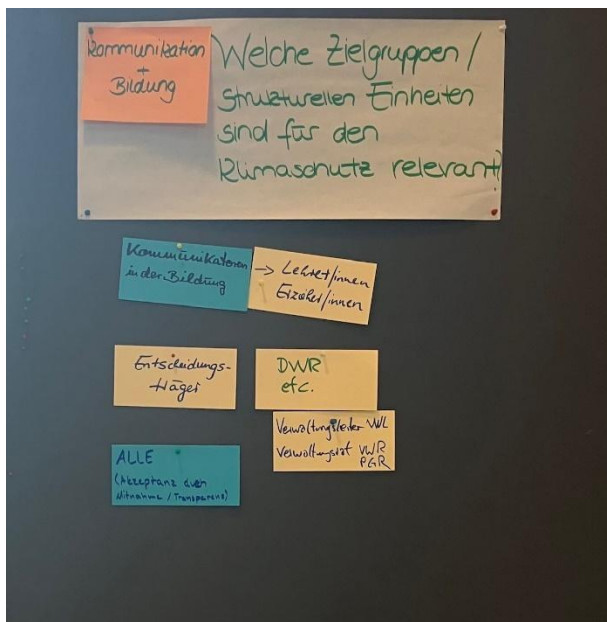 Kommunikation
+
Bildung
Welche Zielgruppen /
strukturellen Einheiten
sind für den
Klimaschutz relevant
Kommunikatoren
in der Bildung
→ Lehrer/innen
Erzieher/innen
Entscheidungs-
träger
DWR
etc.
Verwaltungsleiter VWL
Verwaltungsrat VWR
PGR
ALLE
(Akzeptanz durch
Mitnahme / Transparenz)